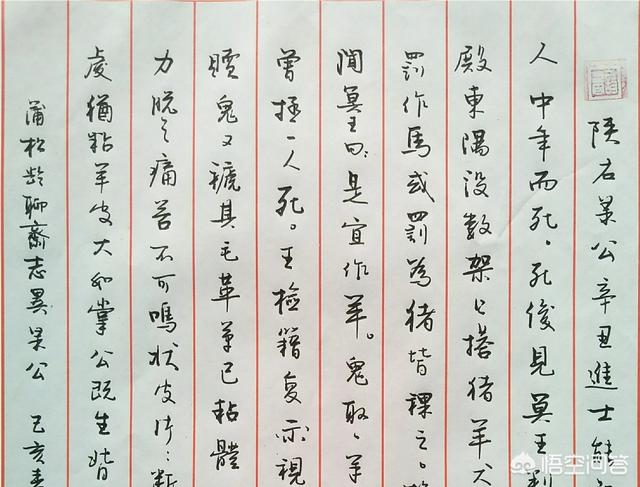 陝右某公辛丑進士能
人中年而死。死後見冥王判
殿東隅設數架上搭猪羊犬
罰作馬或罰為猪皆裸之。
聞冥王曰:是宜作羊。鬼取、羊
曾拯一人死。王檢籍复示視
贖鬼又褫其毛革革已粘體
力脱之痛苦不可鳴狀皮片:断
處猶粘羊皮大如掌公既生背
蒲松龄聊齋志異某公 己亥春
悟空问答